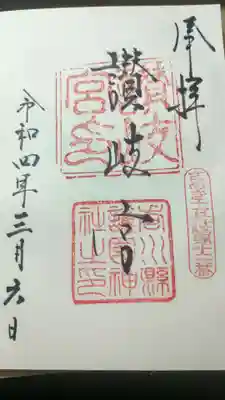 奉拝
讃岐宮
讃岐宮
香川縣護國神社之印
令和四年三月六日